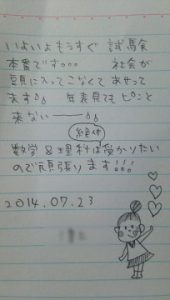 いよいよもうすぐ 試験
本番です｡｡｡ 社会が
頭に入ってこなくて あせって
ます 年表見ても ピンと
来ない
絶体
数学 & 理科は受かりたい
ので頑張ります!!!
2014.07.23